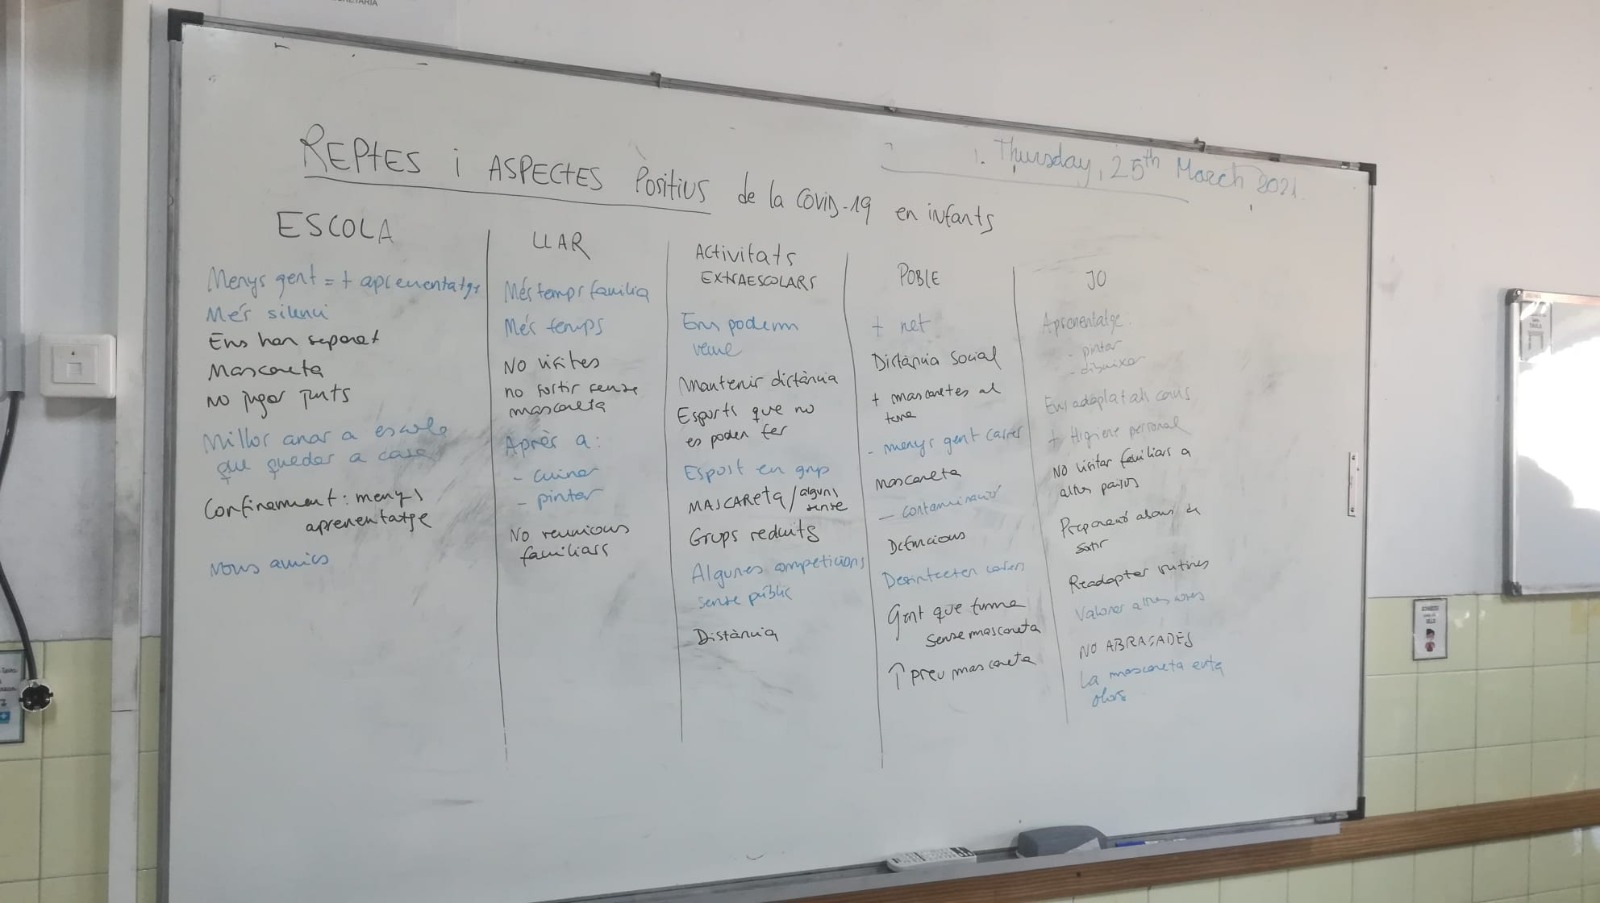 Thursday, 25th March 2021
REPTES i ASPECTES Positius de la COVID-19 en infants
ESCOLA
Menys gent = + aprenentatge
Més silenci
Ens han separat
Mascareta
No jugar junts
Millor anar a escola
que quedar a casa
Confinament: menys
aprenentatge
Nous amics
LLAR
Més temps família
Més temps
No visites
no sortir sense
mascareta
Après a:
- cuinar
- pintar
No reunions
familiars
Activitats
EXTRAESCOLARS
Ens podem
veure
Mantenir distància
Esports que no
es poden fer
Esport en grup
MASCARETA / alguns
sense
Grups reduïts
Algunes competicions
sense públic
Distància
POBLE
+ net
Distància social
+ mascaretes al
terra
- menys gent carrer
mascareta
- contaminació
Defuncions
Desinfecten
Gent que fuma
sense mascareta
↑ preu mascareta
JO
Aprenentatge
- pintar
- dibuixar
Ens adaptat als canvis
+ Higiene personal
No visitar familiars a
altres països
Preparació abans de
sortir
Readaptar rutines
Valorar altres coses
NO ABRAÇADES
La mascareta evita
olors